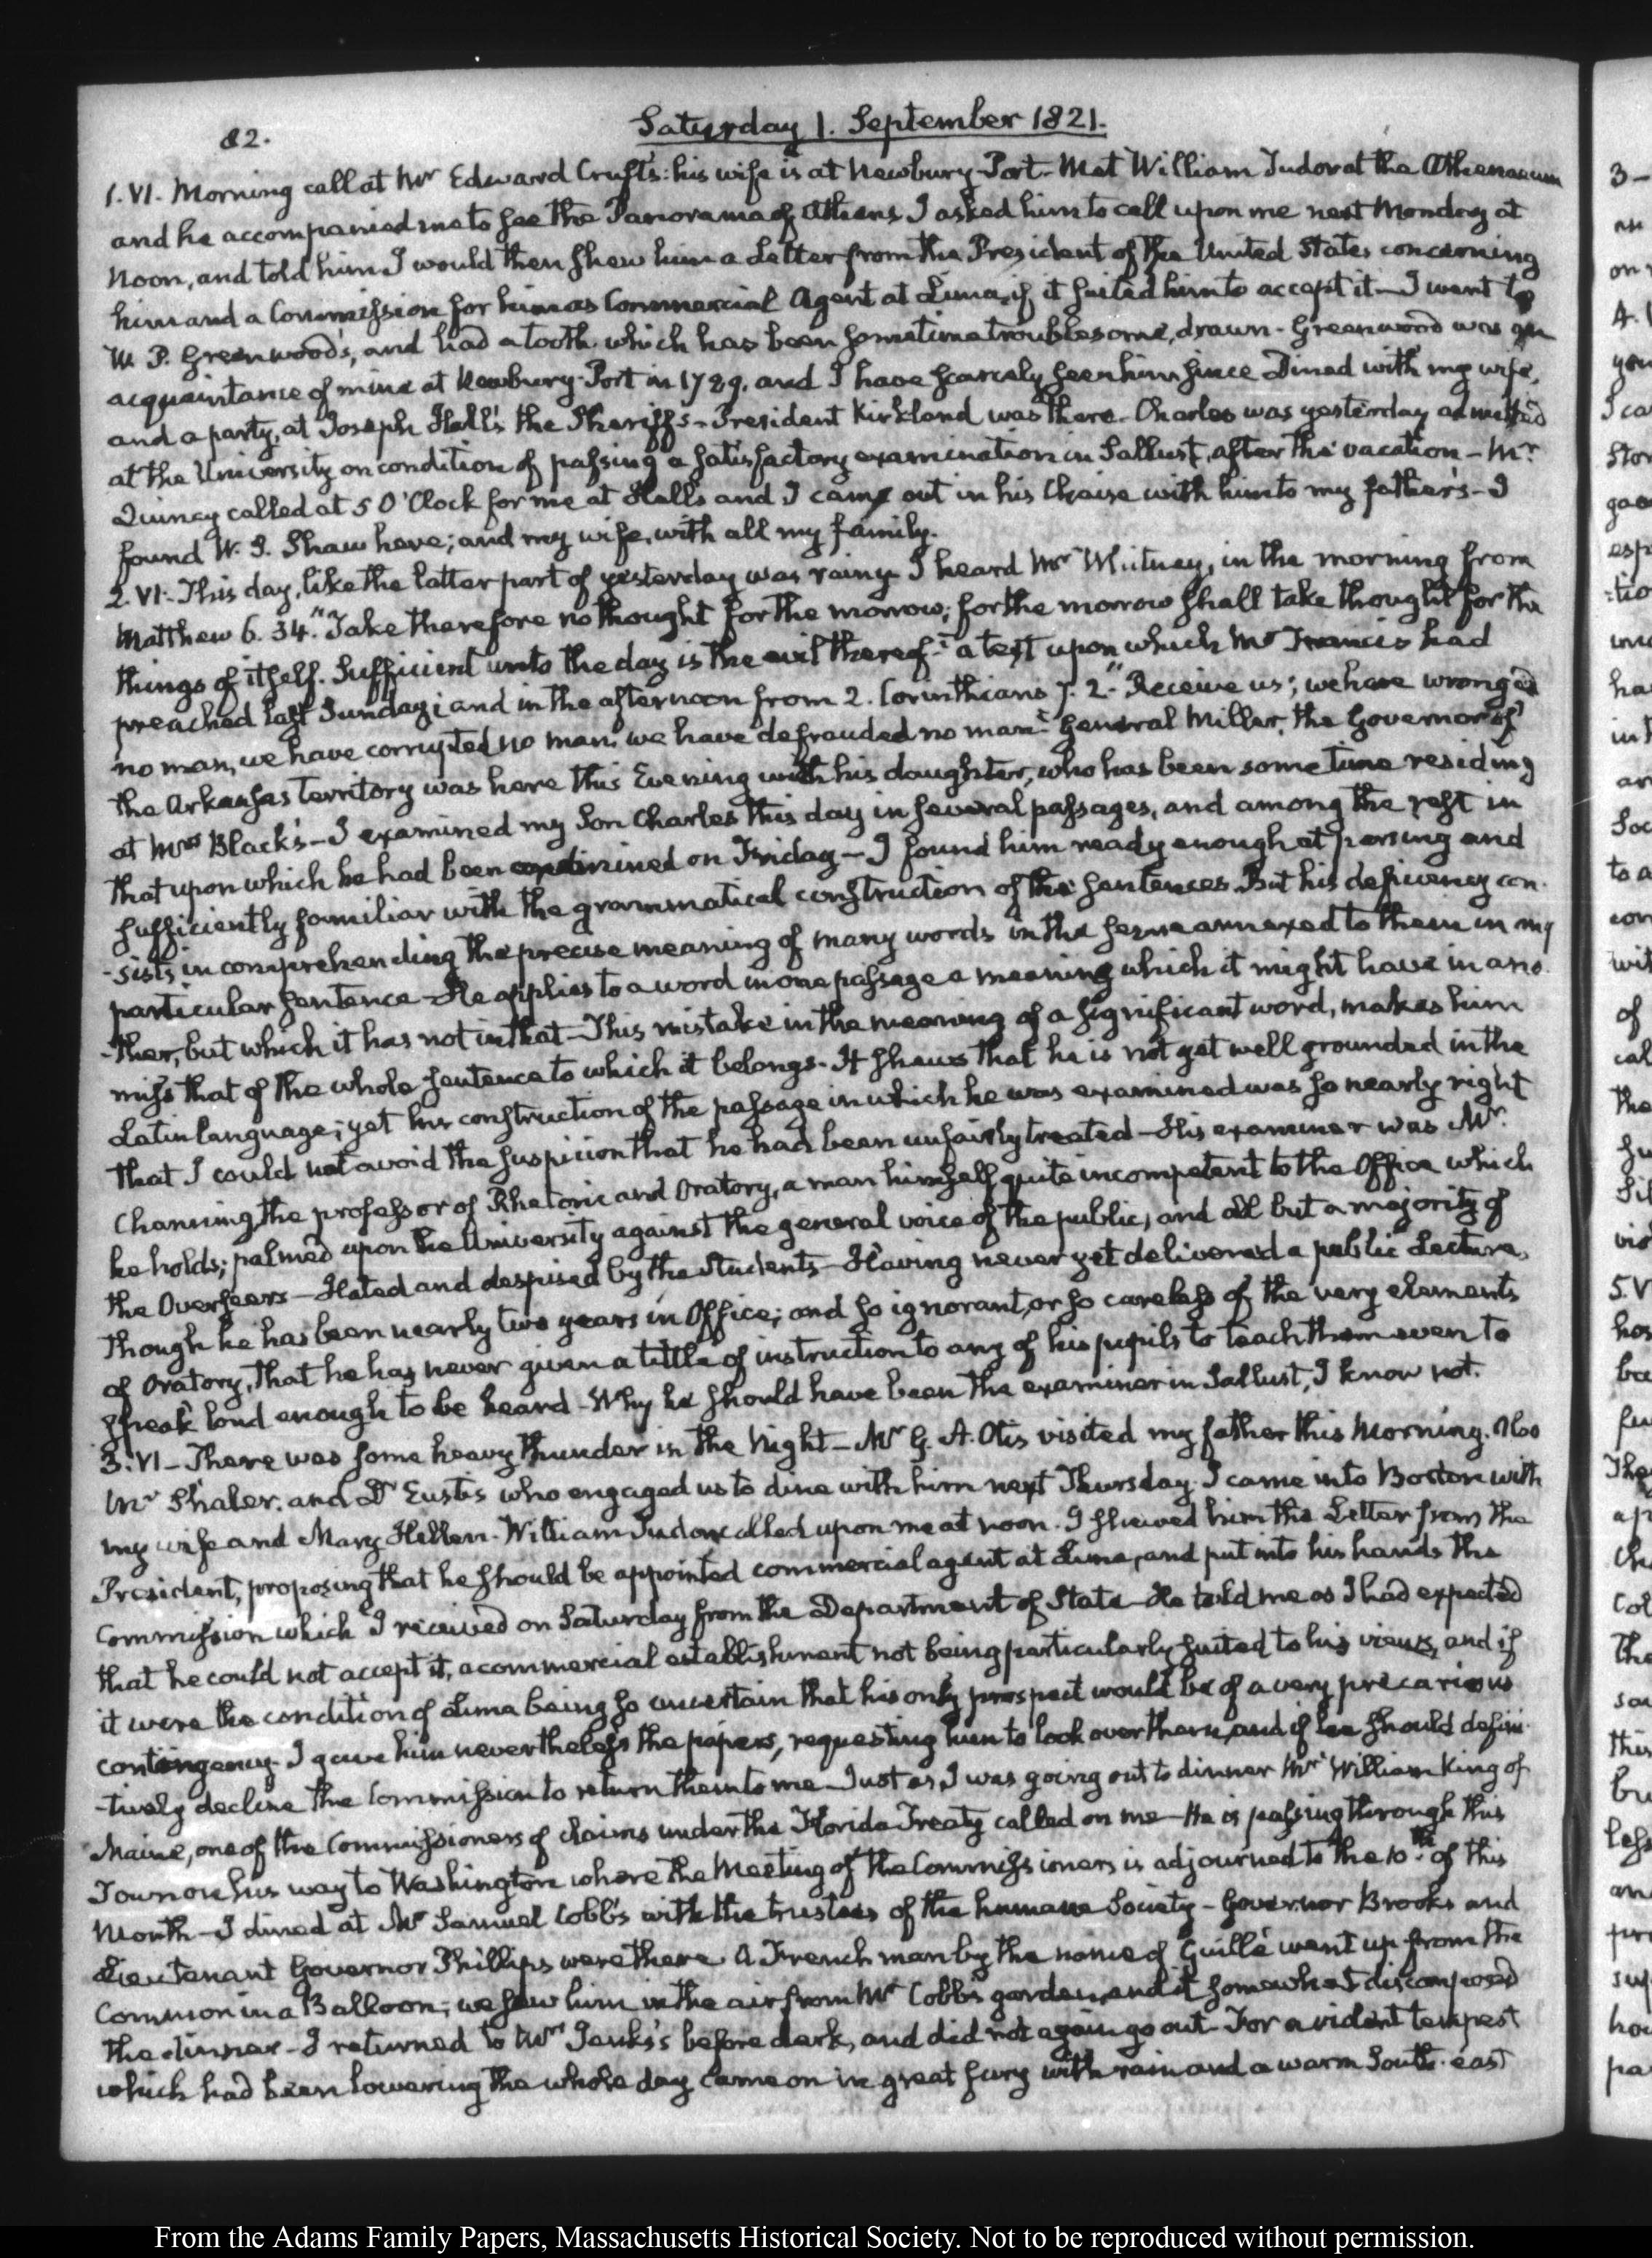 82.
Saturday 1. September 1821.
1. VI. Morning call at Mr Edward Cruft's: his wife is at Newbury-Port- Met William Tudor at the Athenaeum
and he accompanied me to see the Panorama of Athens I asked him to call upon me next Monday at
Noon, and told him I would then shew him a Letter from the President of the United States concerning
him and a Commission for him as Commercial Agent at Lima, if it suited him to accept it— I went to
W. P. Greenwood's, and had a tooth which has been sometime troublesome, drawn- Greenwood was an
acquaintance of mine at Newbury-Port in 1789. and I have scarcely seen him since Dined with my wife,
and a party, at Joseph Hall's the Sheriff's- President Kirkland was there- Charles was yesterday admitted
at the University on condition of passing a satisfactory examination in Sallust, after the vacation- Mr.
Quincy called at 5 O'Clock for me at Halls and I came out in his Chaise with him to my father's- I
found W. S. Shaw here; and my wife, with all my family.
2. VI- This day, like the latter part of yesterday was rainy I heard Mr Whitney, in the morning from
Matthew 6. 34. "Take therefore no thought for the morrow; for the morrow shall take thought for the
things of itself. Sufficient unto the day is the evil thereof"- a text upon which Mr Francis had
preached last Sunday; and in the afternoon from 2. Corinthians 7. 2. "Receive us; we have wronged
no man, we have corrupted no man, we have defrauded no man". General Miller, the Governor of
the Arkansas territory was here this Evening with his daughter, who has been some time residing
at Mrs Black's— I examined my Son Charles this day in several passages, and among the rest in
that upon which he had been examined on Friday— I found him ready enough at parsing and
sufficiently familiar with the grammatical construction of the sentences. But his deficiency con-
-sists in comprehending the precise meaning of many words in the sense annexed to them in any
particular sentence- He applies to a word in one passage a meaning which it might have in ano-
-ther, but which it has not in that- This mistake in the meaning of a significant word, makes him
miss that of the whole sentence to which it belongs- It shews that he is not yet well grounded in the
Latin language; yet his construction of the passage in which he was examined was so nearly right
that I could not avoid the suspicion that he had been unfairly treated- His examiner was Mr.
Channing the professor of Rhetoric and Oratory, a man himself quite incompetent to the Office which
he holds; palmed upon the University against the general voice of the public, and all but a majority of
the Overseers- Hated and despised by the Students- Having never yet delivered a public Lecture,
though he has been nearly two years in Office; and so ignorant, or so careless of the very elements
of Oratory, that he has never given a tittle of instruction to any of his pupils to teach them even to
speak loud enough to be heard- Why he should have been the examiner in Sallust, I know not.
3. VI- There was some heavy thunder in the Night- Mr G. A. Otis visited my father this Morning. Also
Mr Shaler. and Dr Eustis who engaged us to dine with him next Thursday. I came into Boston with
my wife and Mary Hellen- William Tudor called upon me at noon. I shewed him the Letter from the
President, proposing that he should be appointed commercial agent at Lima, and put into his hands the
Commission which I received on Saturday from the Department of State- He told me as I had expected
that he could not accept it, a commercial establishment not being particularly suited to his views, and if
it were the condition of Lima being so uncertain that his only prospect would be of a very precarious
contingency- I gave him nevertheless the papers, requesting him to look over them, and if he should defini-
-tively decline the Commission to return them to me- Just as I was going out to dinner Mr William King of
Maine, one of the Commissioners of claims under the Florida Treaty called on me- He is passing through this
Town on his way to Washington where the Meeting of the Commissioners is adjourned to the 10th. of this
Month- I dined at Mr Samuel Cobb's with the trustees of the humane Society- Governor Brooks and
Lieutenant Governor Phillips were there. A French man by the name of Guillé went up from the
Common in a Balloon; we saw him in the air from Mr Cobb's garden, and it somewhat discomposed
the dinner- I returned to Mrs Jenks's before dark, and did not again go out- For a violent tempest
which had been lowering the whole day came on in great fury with rain and a warm South-east
From the Adams Family Papers, Massachusetts Historical Society. Not to be reproduced without permission.